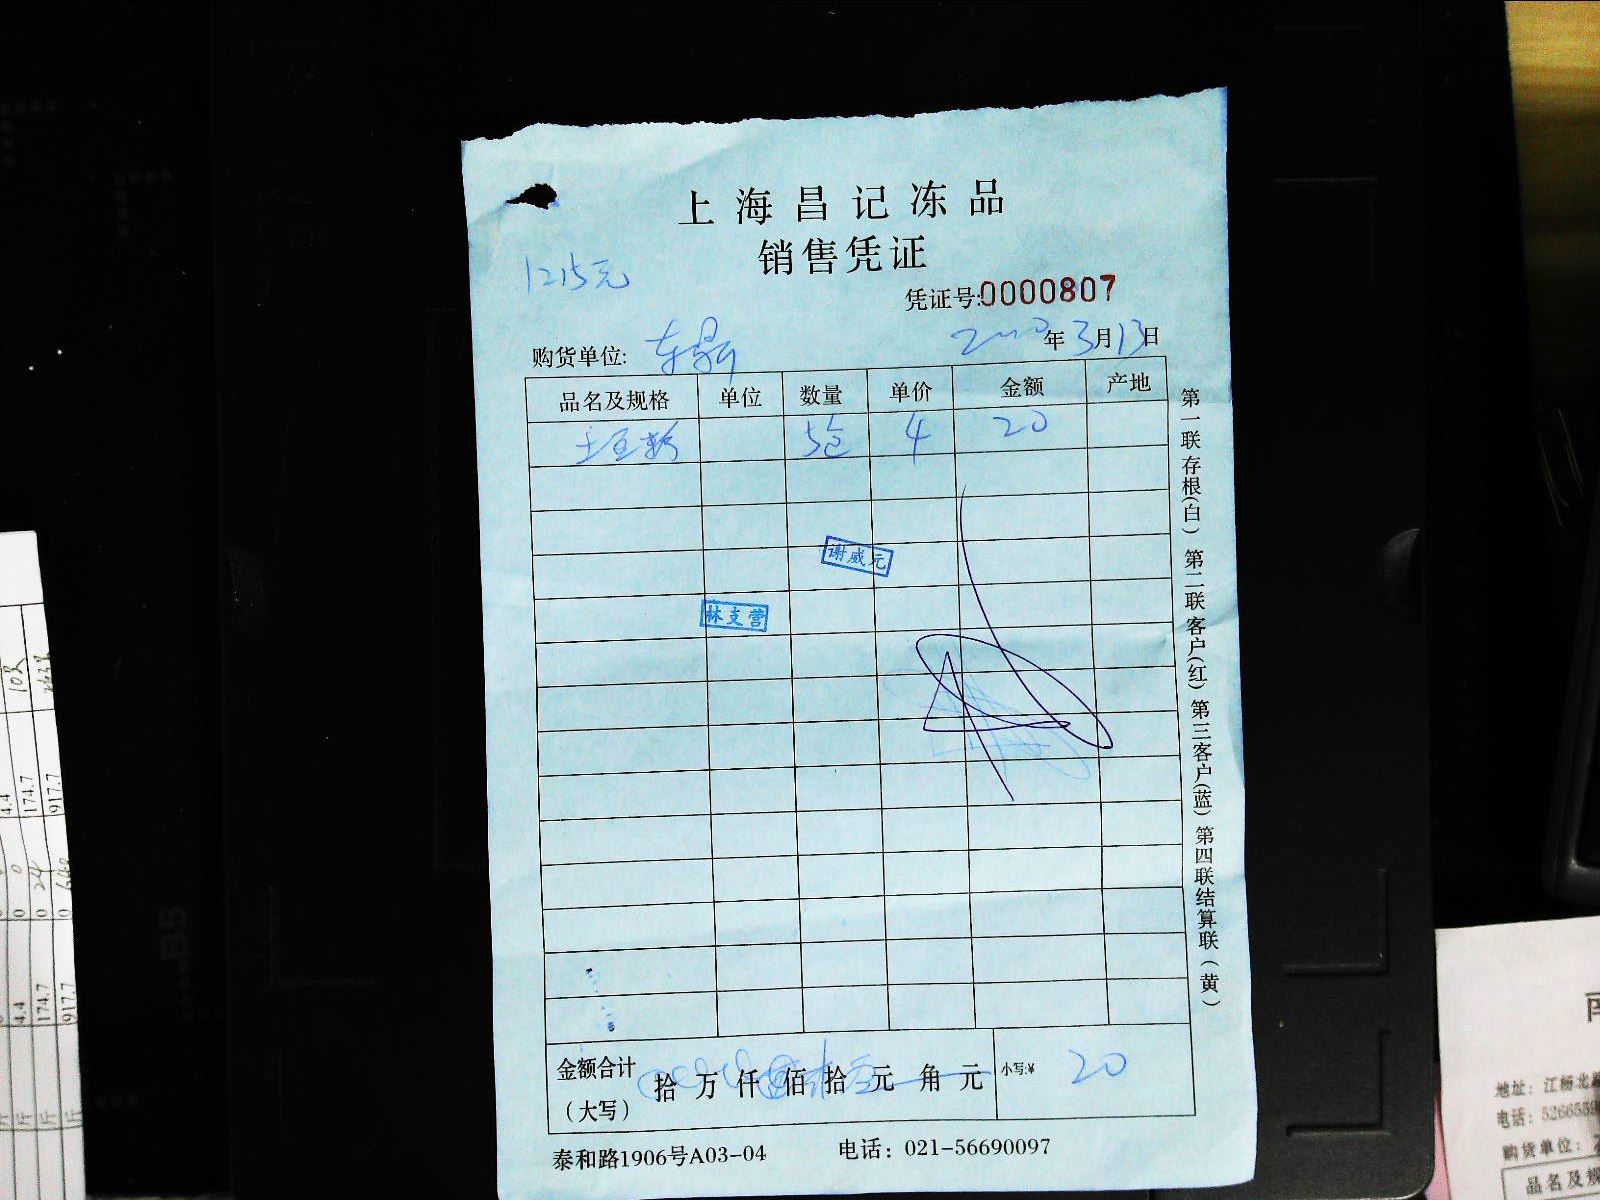 上海昌记冻品
销售凭证
1215元
凭证号:0000807
购货单位:
年3月13日
品名及规格 单位 数量 单价 金额 产地
5包 4 20
谢威元
林支营
第一联存根(白) 第二联客户(红) 第三客户(蓝) 第四联结算联(黄)
金额合计(大写) 拾 万 仟 佰 拾 元 角 元 小写:¥ 20
泰和路1906号A03-04 电话: 021-56690097
B5
10
4.4 174.7 917.7
0 24
0 0 0
4.4 174.7 917.7
地址: 江杨北
电话:
购货单位:
品名及规